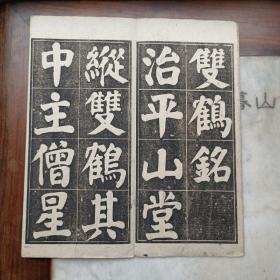 雙鶴銘
治平山堂
縱雙鶴其
中主僧星
山